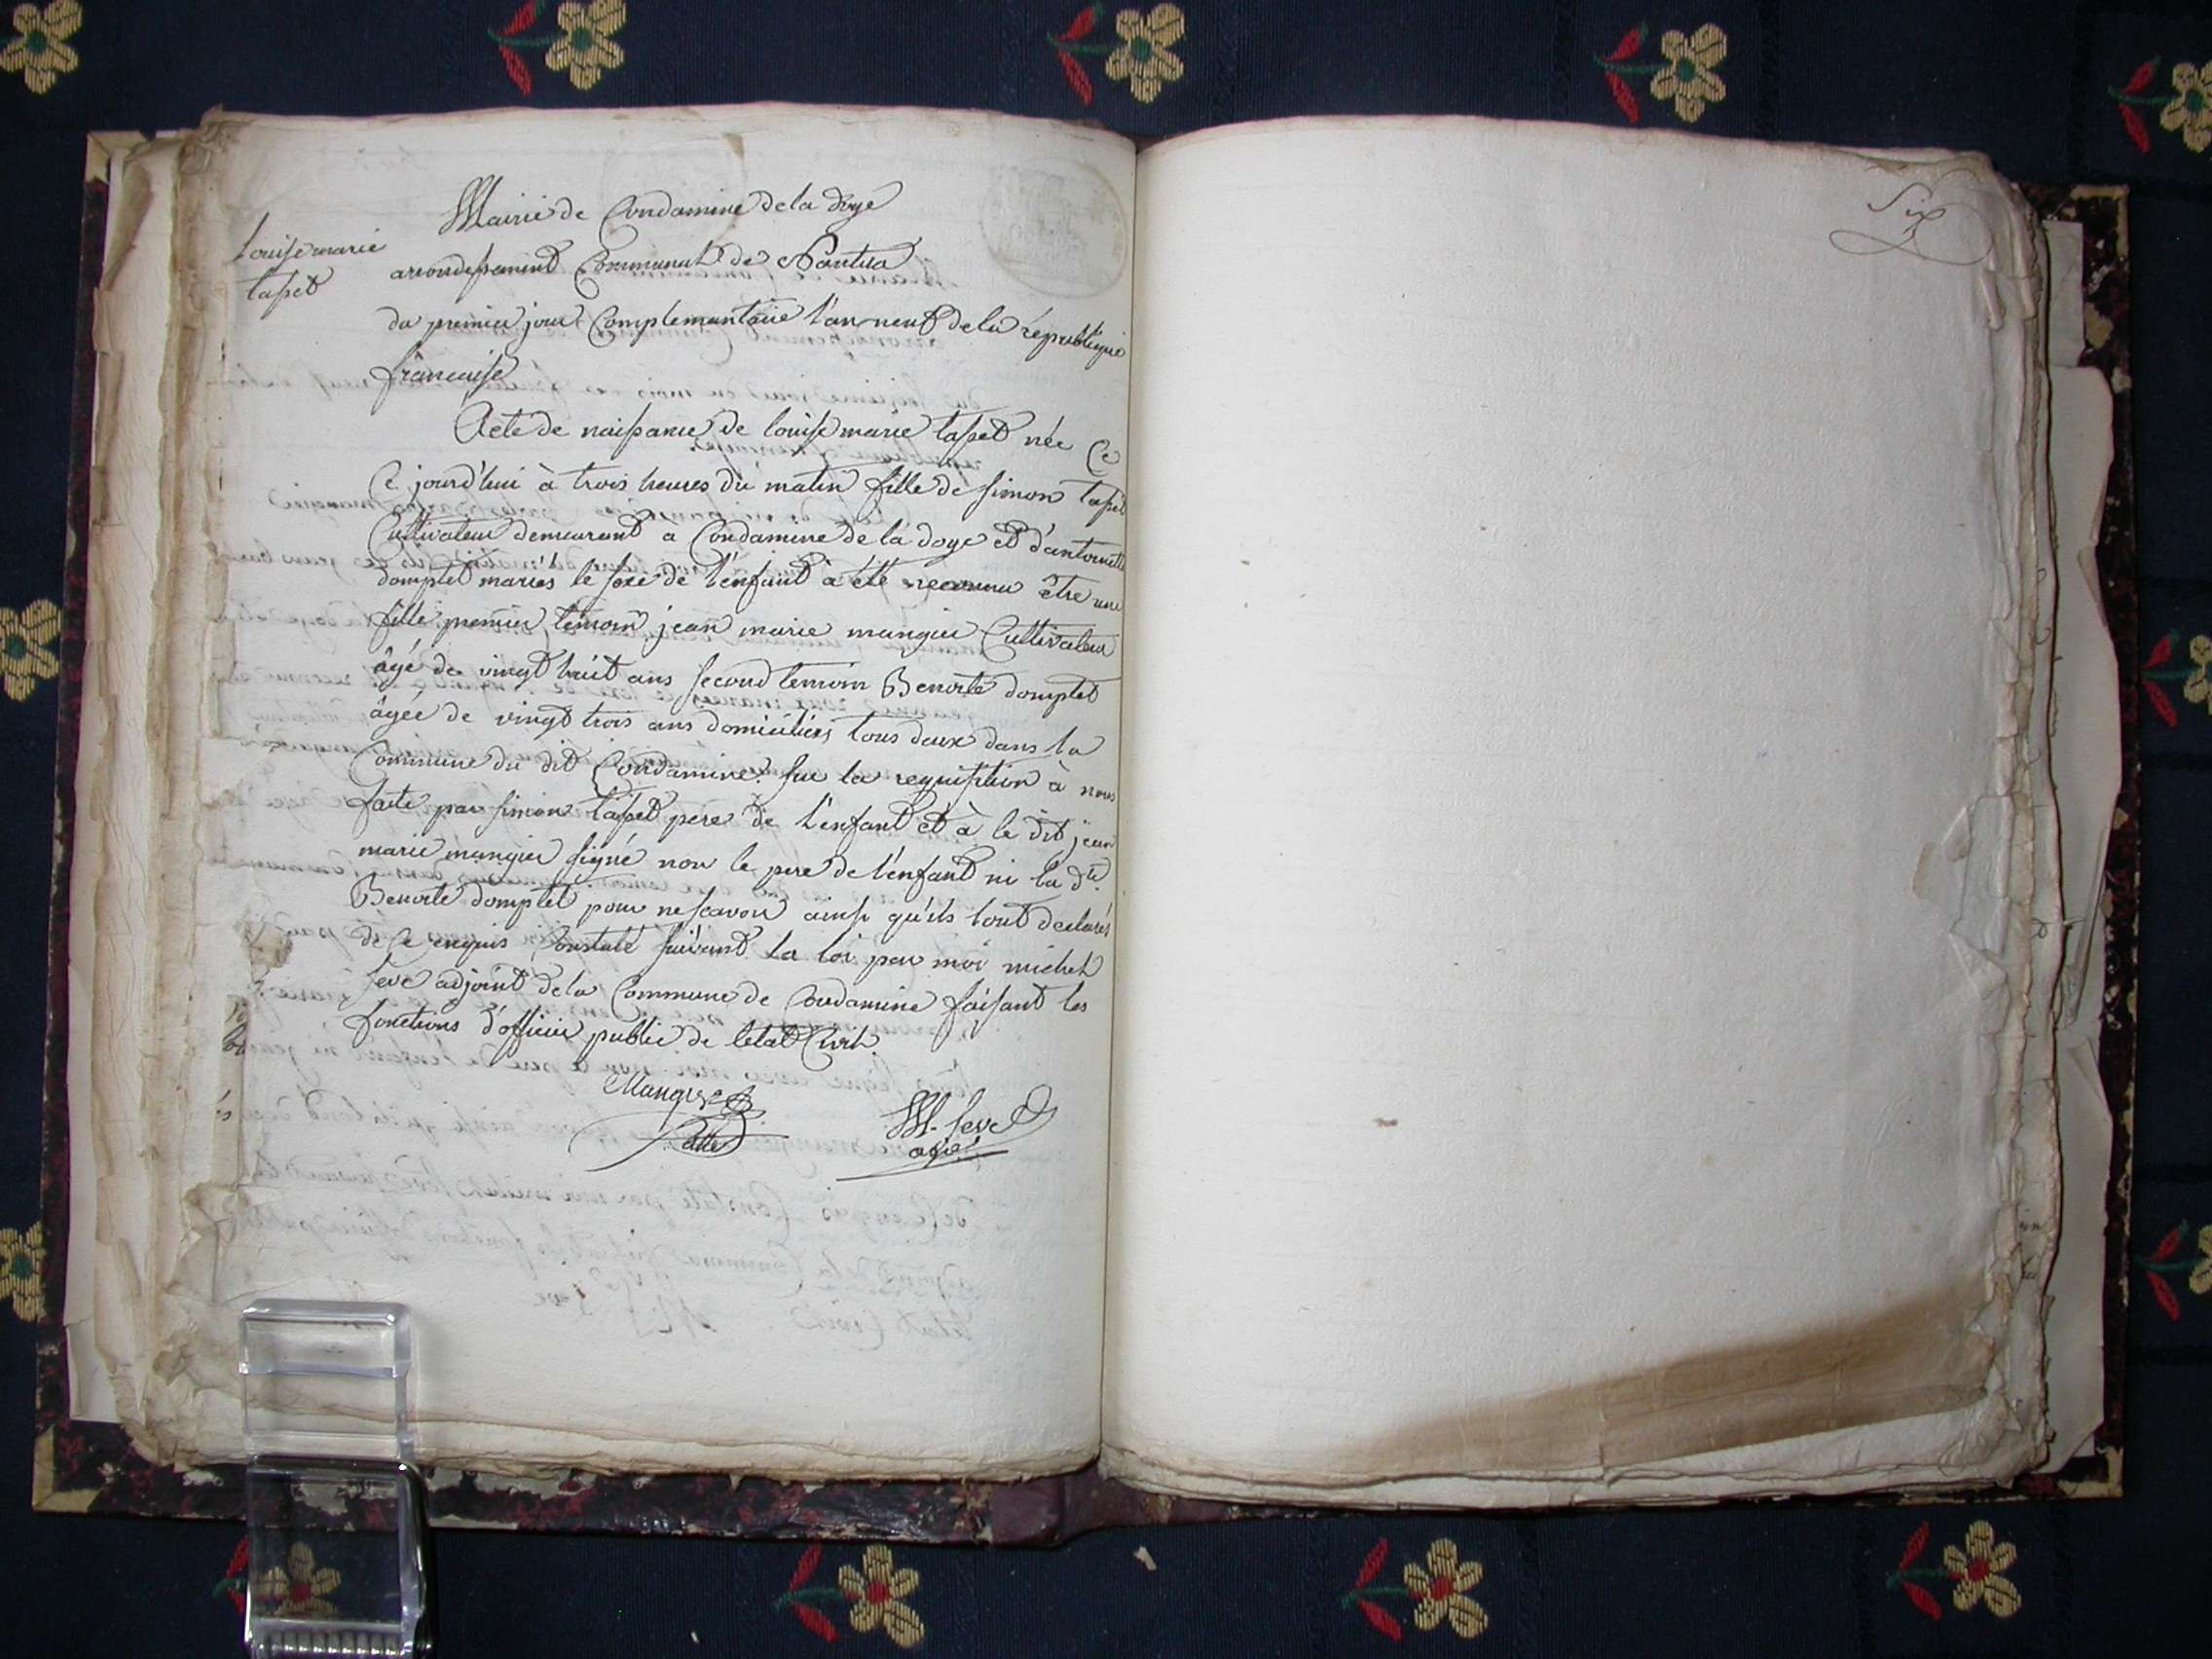 Six
Mairie de Condamine de la doye
Louise marie
tapet
arrondissement Communal de Nantua
du premier jour Complementaire l'an neuf de la republique
française
Acte de naissance de louise marie tapet née Ce
Ce jourd'hui à trois heures du matin fille de simon tapet
Cultivateur demeurant a Condamine de la doye et d'antoinette
domplet mariés le sexe de l'enfant à été reconnu être une
fille premier témoin jean marie mangier Cultivateur
âgé de vingt huit ans second temoin Benoite domplet
âgée de vingt trois ans domiciliés tous deux dans la
Commune du dit Condamine. sur la requisition à nous
faite par simon tapet pere de l'enfant et à le dit jean
marie mangier signé non le pere de l'enfant ni la dte
Benoite domplet pour ne scavoir ainsi qu'ils l'ont declarés
de Ce enquis Constaté suivant la loi par moi michel
seve adjoint de la Commune de Condamine faisant les
fonctions d'officier public de letat Civil.
Mangier
M. seve
adjt